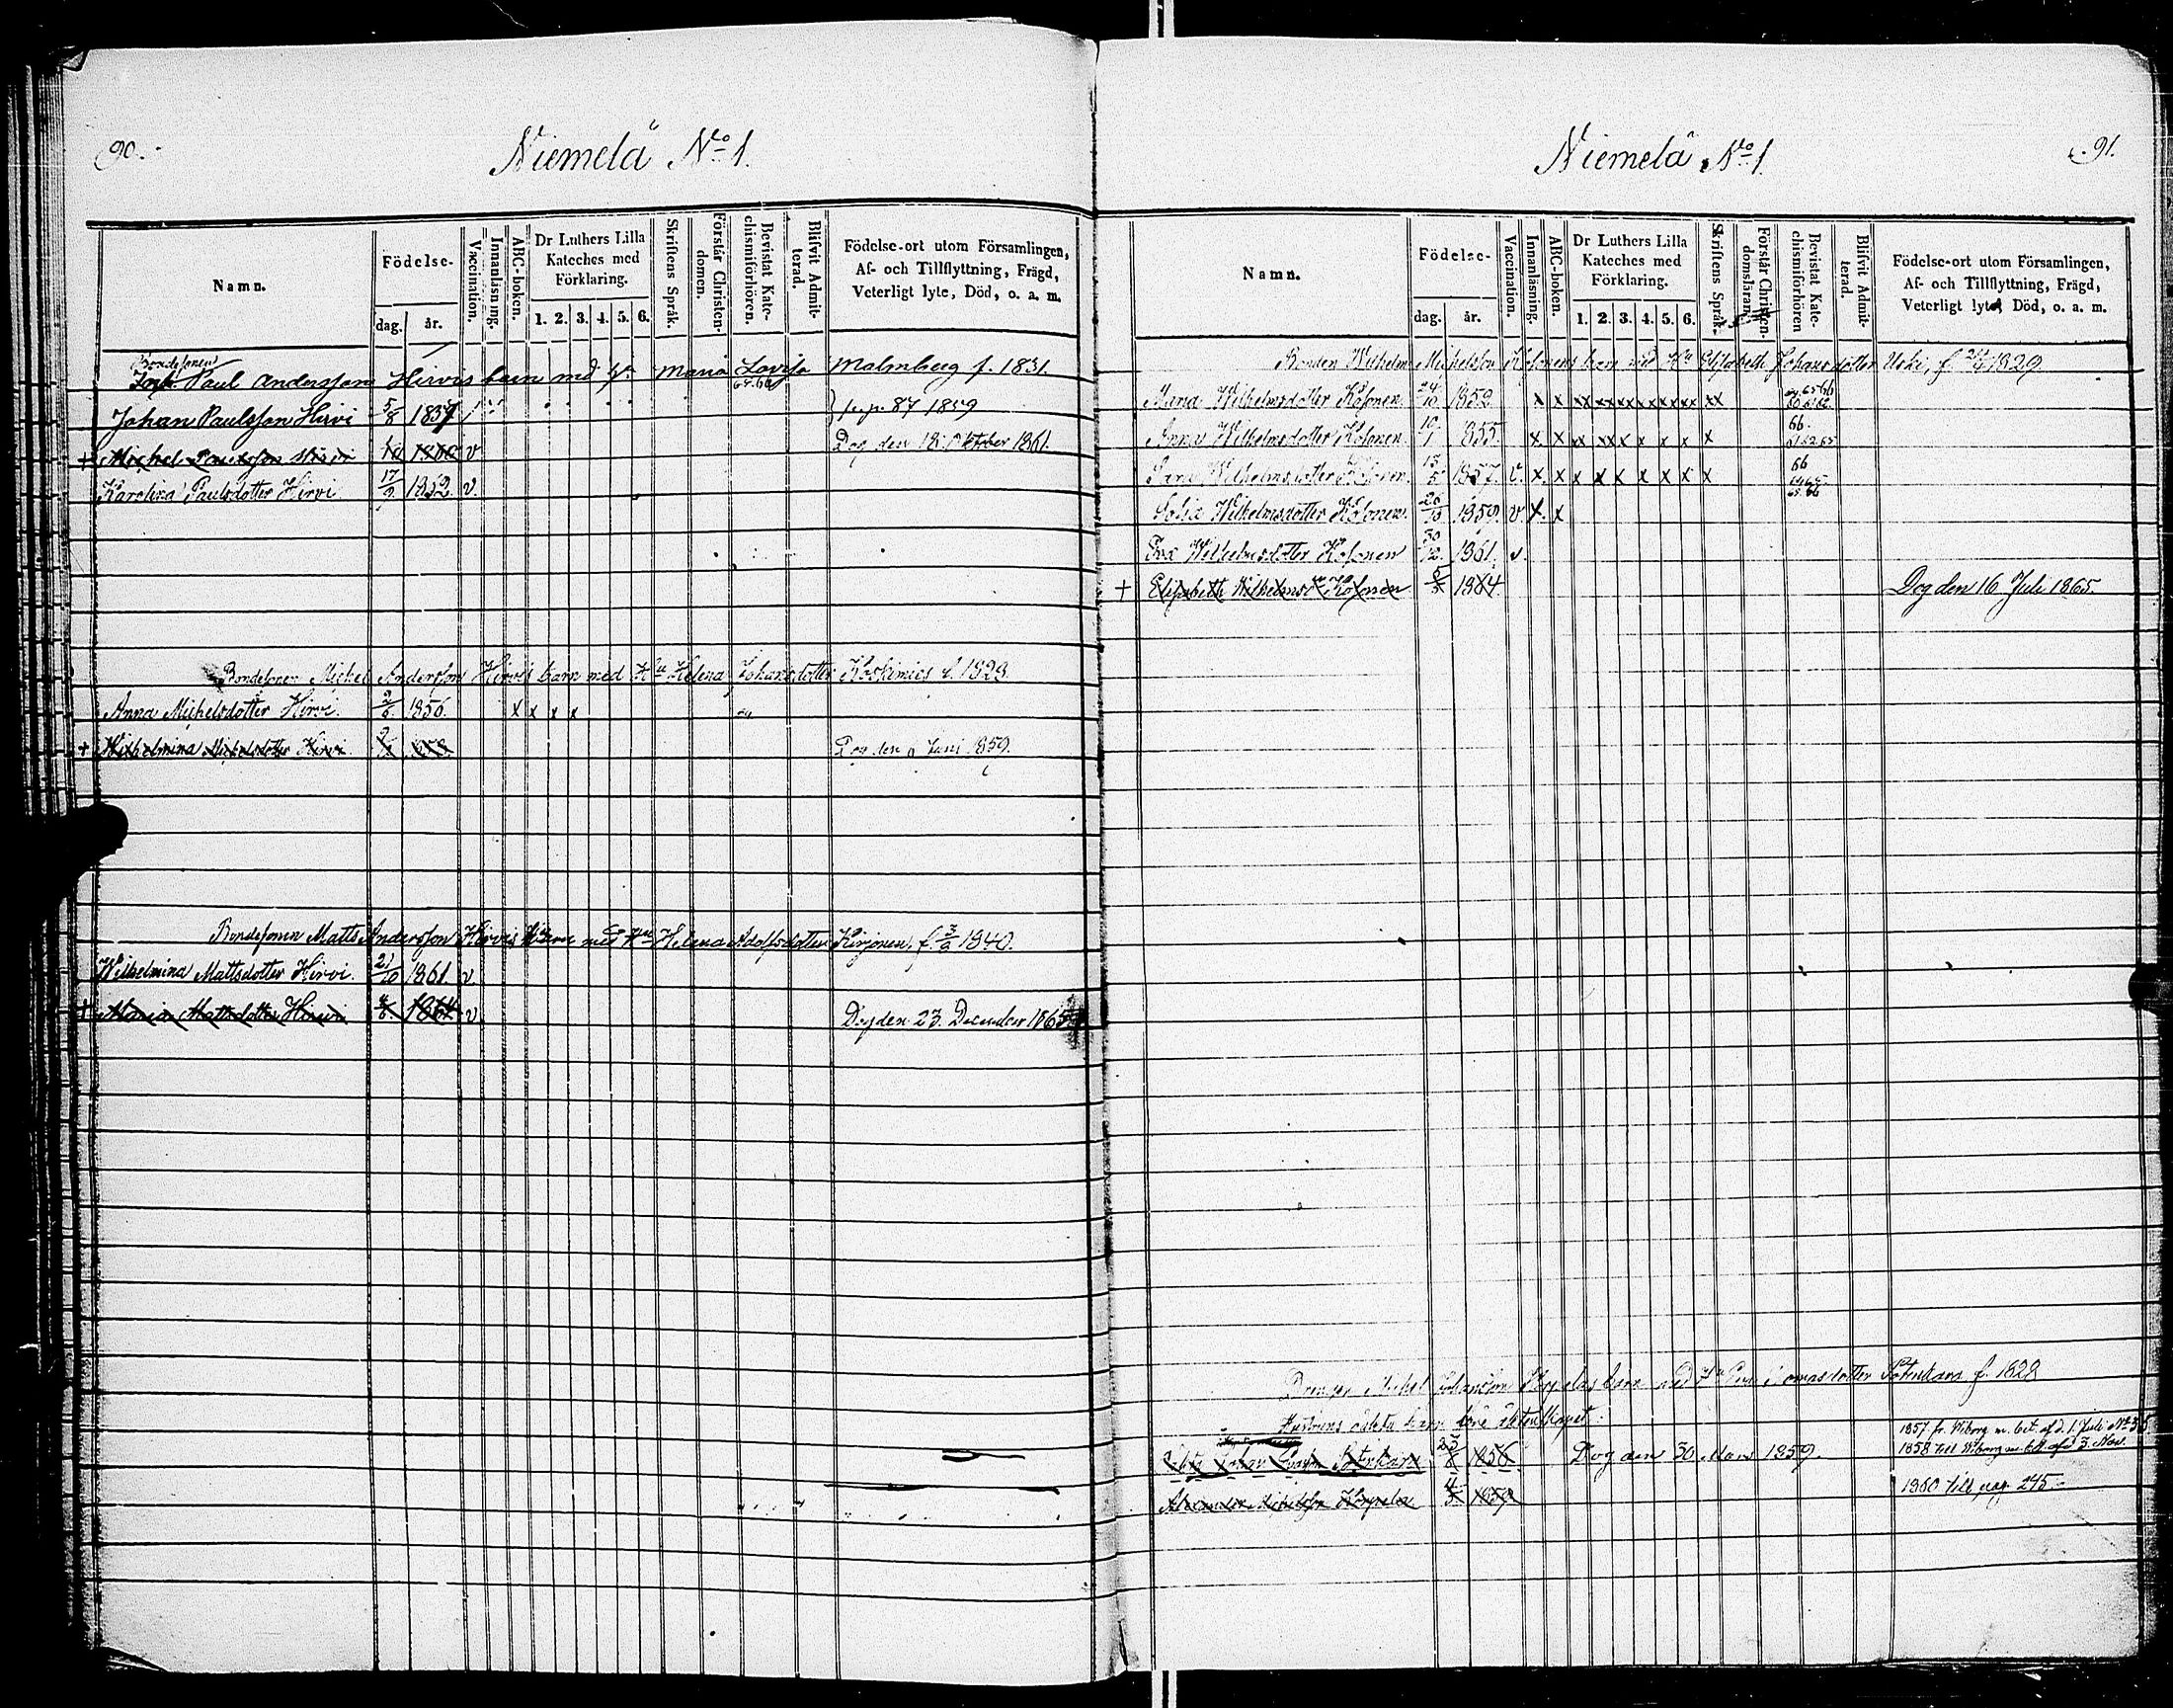 90.
Niemelä No 1.
Namn.
Födelse-
dag.
år.
Vaccination.
Innanläsning.
ABC-boken.
Dr Luthers Lilla
Kateches med
Förklaring.
1. 2. 3. 4. 5. 6.
Skriftens Språk.
Förstår Christen-
domen.
Bevistat Kate-
chismiförhören.
Blifvit Admit-
terad.
Födelse-ort utom Församlingen,
Af- och Tillflyttning, Frägd,
Veterligt lyte, Död, o. a. m.
Bondesonen
Paul Andersson Hirvis barn med Maria Lovisa Malmberg f. 1831.
Johan Paulsson Hirvi 5/8 1857 87 1859
+ Michel Paulsson Hirvi 1860 v Dog den 18 Oktober 1861.
Karolina Paulsdotter Hirvi 17/9 1862 v.
Bondesonen Michel Anderssons Hirvis barn med Hu Helena Johansdotter Koskimies f. 1828
Anna Michelsdotter Hirvi. 2/6 1856. x x x x
+ Wilhelmina Michelsdotter Hirvi Dog den 9 Juni 1859.
Bondesonen Matts Andersson Hirvis barn med Hu Helena Adolfsdotter Kirjonen, f. 3/9 1840.
Wilhelmina Mattsdotter Hirvi. 21/10 1861. v
+ Maria Mattsdotter Hirvi 4/8 1864 v Dog den 23. December 1865
Niemelä No 1.
91.
Namn.
Födelse-
dag.
år.
Vaccination.
Innanläsning.
ABC-boken.
Dr Luthers Lilla
Kateches med
Förklaring.
1. 2. 3. 4. 5. 6.
Skriftens Språk.
Förstår Christen-
domsläran.
Bevistat Kate-
chismiförhören
Blifvit Admit-
terad.
Födelse-ort utom Församlingen,
Af- och Tillflyttning, Frägd,
Veterligt lyte, Död, o. a. m.
Bonden Wilhelm Michelsson Kosonens barn med Hu Elisabeth Johansdotter Uski, f. 1829
Maria Wilhelmsdotter Kosonen. 24/10 1852 x x xx xx xx xx xx xx xx
Anna Wilhelmsdotter Kosonen. 19/1 1855. x x xx xx x x x x x 66.
Sara Wilhelmsdotter Kosonen. 15/5 1857. v. x x x x x x x x x 66
Sofia Wilhelmsdotter Kosonen. 26/10 1859. v. x. x
Eva Wilhelmsdotter Kosonen 30/12 1861. v.
+ Elisabeth Wilhelmsdr Kosonen 1864. Dog den 16 Juli 1865.
Drengen Michel Johansson barn med Hu Eva Tomasdotter f. 1828
Hustruns oäkta barn före äktenskapet:
1857 fr. Wiborg m. bet. af d. 1. Juli No 35
1858 till Wiborg m. bet. af d. 3. Nov.
Johan 23/8 1856 Dog den 30 Mars 1859.
Alexander Michelsson 1859 1860 till pag. 245.